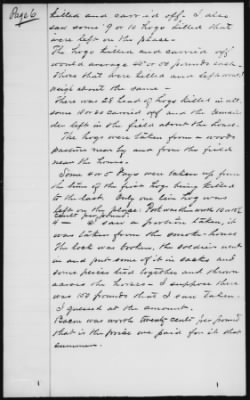 Page 6.
killed and carried off. I also
saw some 9 or 10 hogs killed that
were left on the place.
The hogs killed and carried off
would average 40 or 50 pounds each.
Those that were killed and left would
weigh about the same -
There was 28 head of hogs killed in all.
some 18 or 20 carried off and the remain-
der left in the field about the house.
The hogs were taken from a woods
pasture near by and from the field
near the house.
Some 4 or 5 Days were taken up from
the time of the first hog being killed
to the last. Only one live hog was
left on the place. Pork was then worth 10 or 12
cents per pound.
I saw a portion taken, it
was taken from the smoke-house
The lock was broken, the soldiers went
in and put some of it in sacks and
some pieces tied together and thrown
across the horses - I suppose there
was 150 pounds that I saw taken.
I guessed at the amount.
Bacon was worth twenty cents per pound
that is the price we paid for it that
summer.
1
1